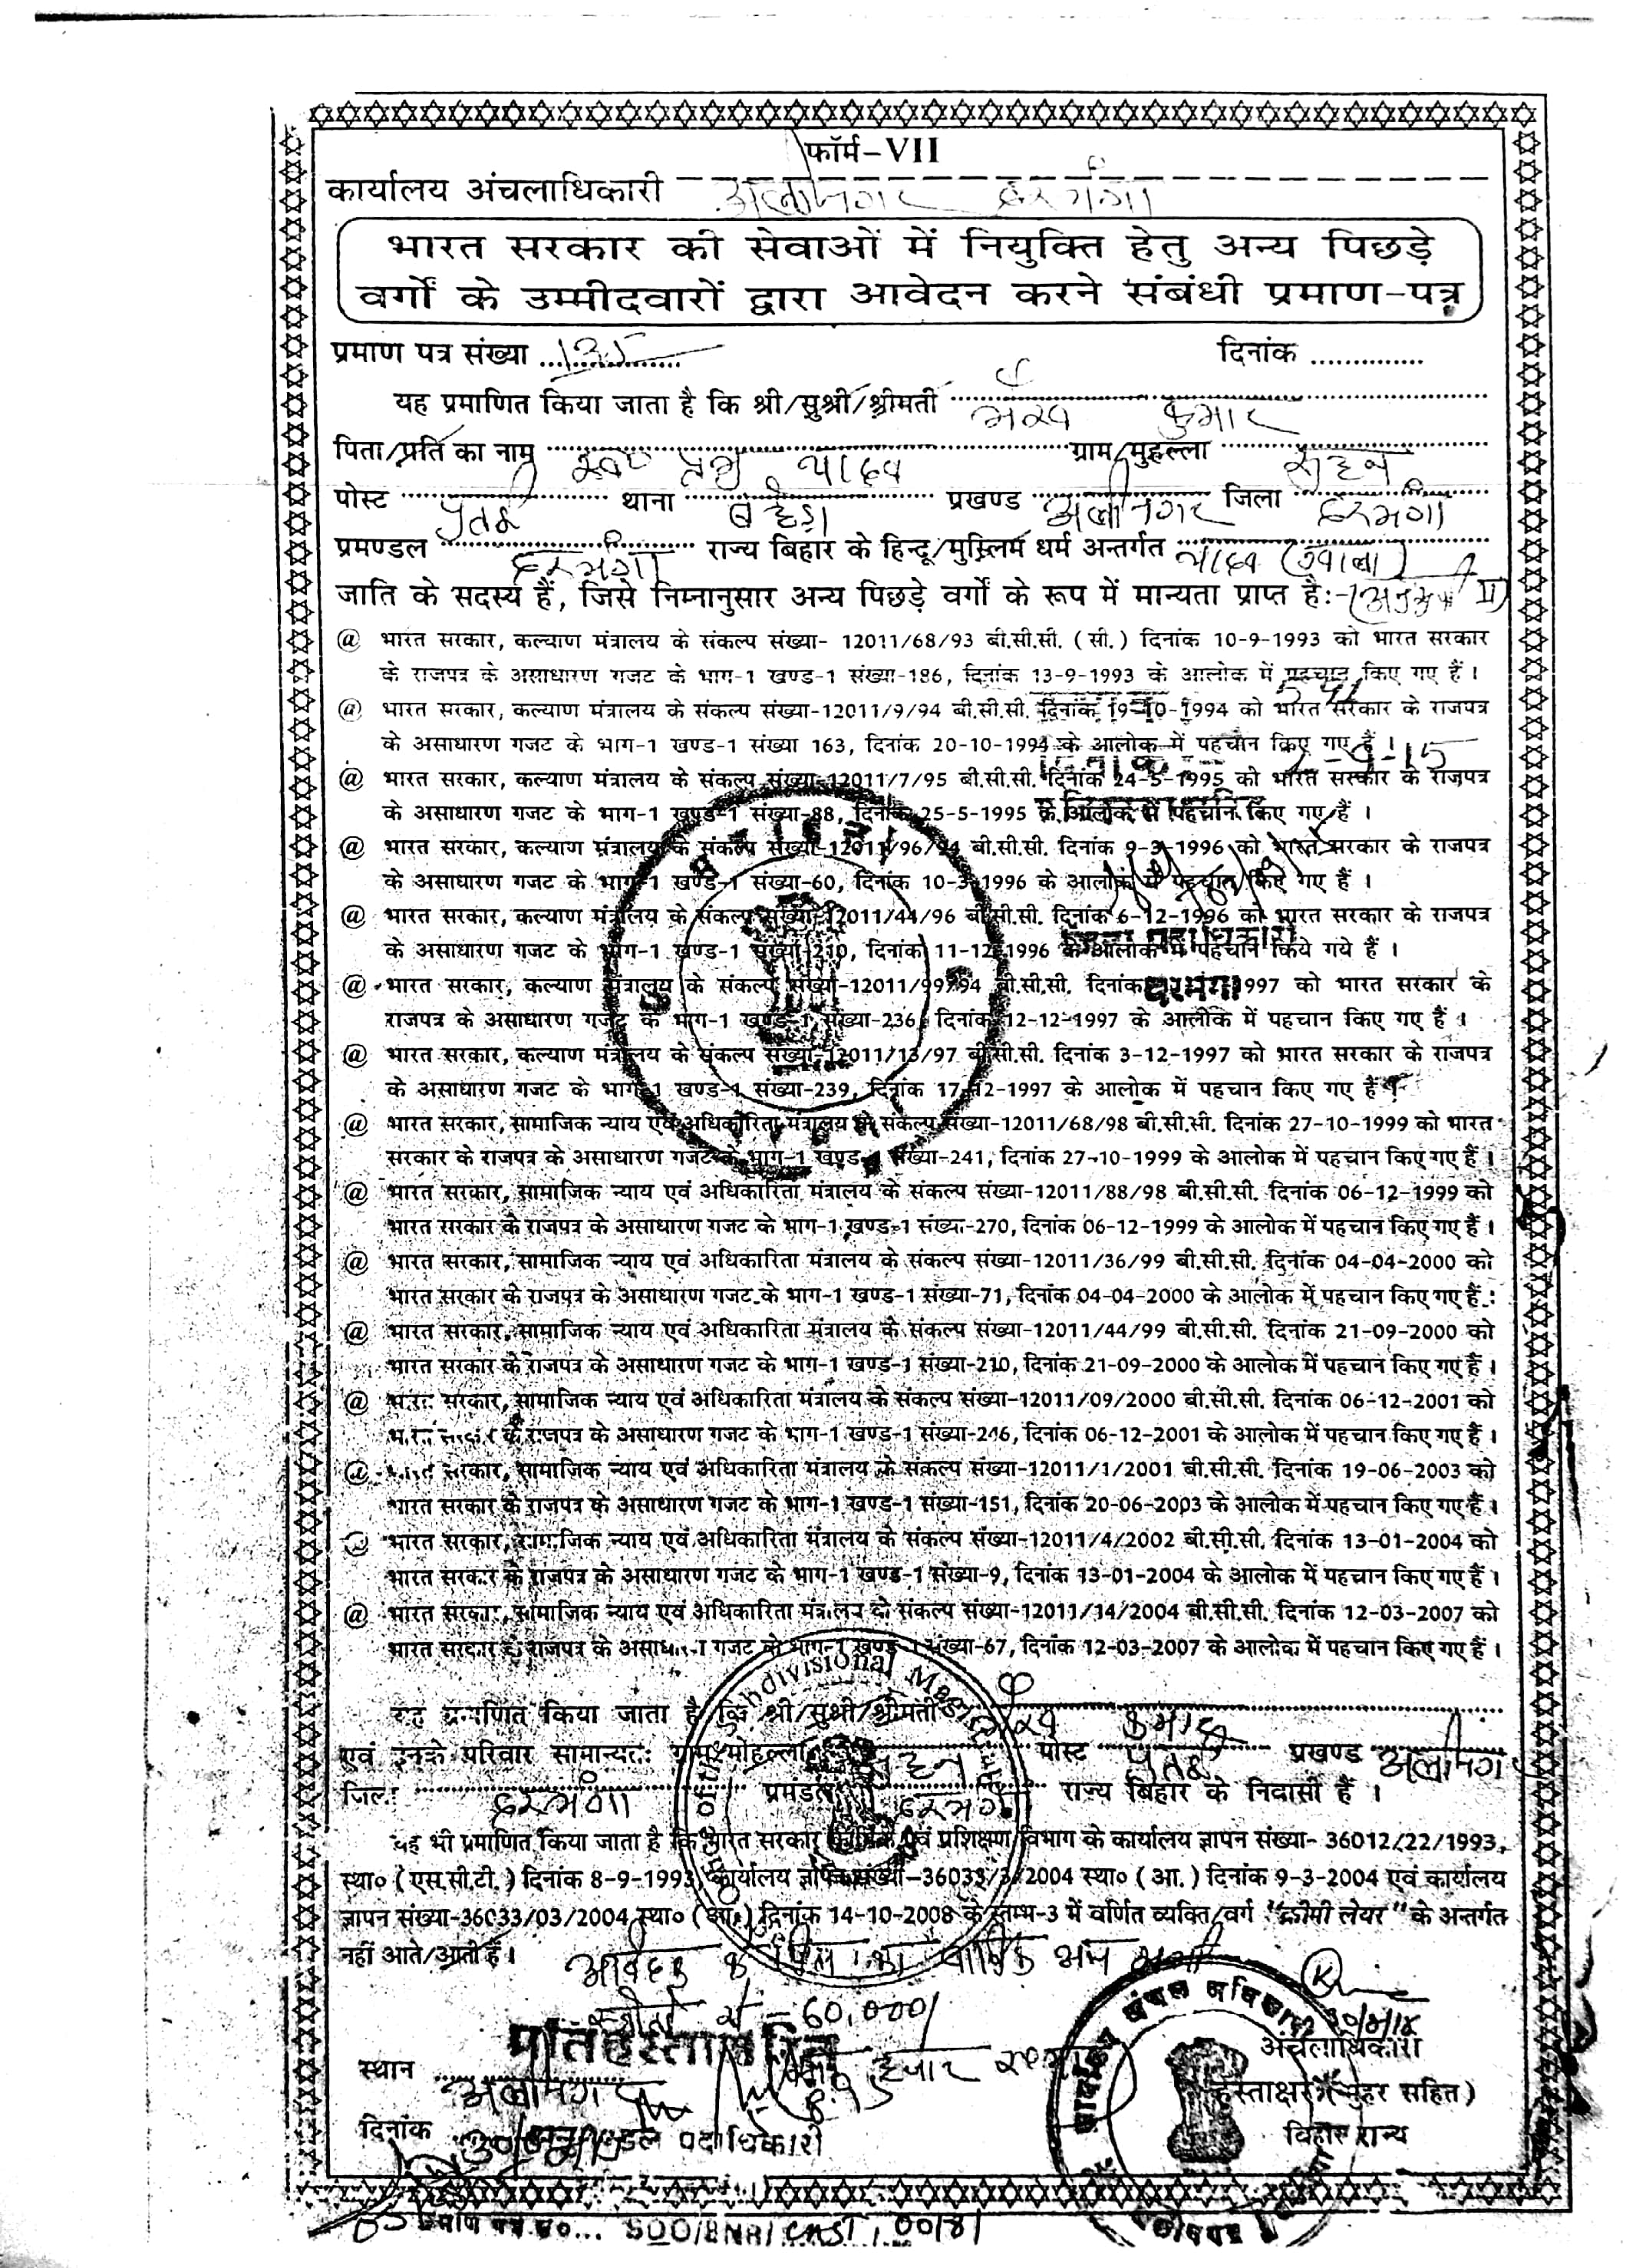 फॉर्म-VII
कार्यालय अंचलाधिकारी अलीनगर दरभंगा
भारत सरकार की सेवाओं में नियुक्ति हेतु अन्य पिछड़े
वर्गों के उम्मीदवारों द्वारा आवेदन करने संबंधी प्रमाण-पत्र
प्रमाण पत्र संख्या 135 दिनांक ..............
यह प्रमाणित किया जाता है कि श्री/सुश्री/श्रीमती कुमार
पिता/प्रति का नाम यादव ग्राम/मुहल्ला
पोस्ट थाना बहेड़ा प्रखण्ड अलीनगर जिला दरभंगा
प्रमण्डल दरभंगा राज्य बिहार के हिन्दू/मुस्लिम धर्म अन्तर्गत यादव (ग्वाला)
जाति के सदस्य हैं, जिसे निम्नानुसार अन्य पिछड़े वर्गों के रूप में मान्यता प्राप्त है:-
@ भारत सरकार, कल्याण मंत्रालय के संकल्प संख्या- 12011/68/93 बी.सी.सी. (सी.) दिनांक 10-9-1993 को भारत सरकार
के राजपत्र के असाधारण गजट के भाग-1 खण्ड-1 संख्या-186, दिनांक 13-9-1993 के आलोक में पहचान किए गए हैं ।
@ भारत सरकार, कल्याण मंत्रालय के संकल्प संख्या-12011/9/94 बी.सी.सी. दिनांक 19-10-1994 को भारत सरकार के राजपत्र
के असाधारण गजट के भाग-1 खण्ड-1 संख्या 163, दिनांक 20-10-1994 के आलोक में पहचान किए गए हैं ।
@ भारत सरकार, कल्याण मंत्रालय के संकल्प संख्या-12011/7/95 बी.सी.सी. दिनांक 24-5-1995 को भारत सरकार के राजपत्र
के असाधारण गजट के भाग-1 खण्ड-1 संख्या-88, दिनांक 25-5-1995 के आलोक में पहचान किए गए हैं ।
@ भारत सरकार, कल्याण मंत्रालय के संकल्प संख्या-12011/96/94 बी.सी.सी. दिनांक 9-3-1996 को भारत सरकार के राजपत्र
के असाधारण गजट के भाग-1 खण्ड-1 संख्या-60, दिनांक 10-3-1996 के आलोक में पहचान किए गए हैं ।
@ भारत सरकार, कल्याण मंत्रालय के संकल्प संख्या-12011/44/96 बी.सी.सी. दिनांक 6-12-1996 को भारत सरकार के राजपत्र
के असाधारण गजट के भाग-1 खण्ड-1 संख्या-210, दिनांक 11-12-1996 के आलोक में पहचान किये गये हैं ।
@ भारत सरकार, कल्याण मंत्रालय के संकल्प संख्या-12011/99/94 बी.सी.सी. दिनांक दरभंगा 1997 को भारत सरकार के
राजपत्र के असाधारण गजट के भाग-1 खण्ड-1 संख्या-236, दिनांक 12-12-1997 के आलोक में पहचान किए गए हैं ।
@ भारत सरकार, कल्याण मंत्रालय के संकल्प संख्या-12011/13/97 बी.सी.सी. दिनांक 3-12-1997 को भारत सरकार के राजपत्र
के असाधारण गजट के भाग-1 खण्ड-1 संख्या-239, दिनांक 17-12-1997 के आलोक में पहचान किए गए हैं ।
@ भारत सरकार, सामाजिक न्याय एवं अधिकारिता मंत्रालय के संकल्प संख्या-12011/68/98 बी.सी.सी. दिनांक 27-10-1999 को भारत
सरकार के राजपत्र के असाधारण गजट के भाग-1 खण्ड-1 संख्या-241, दिनांक 27-10-1999 के आलोक में पहचान किए गए हैं ।
@ भारत सरकार, सामाजिक न्याय एवं अधिकारिता मंत्रालय के संकल्प संख्या-12011/88/98 बी.सी.सी. दिनांक 06-12-1999 को
भारत सरकार के राजपत्र के असाधारण गजट के भाग-1 खण्ड-1 संख्या-270, दिनांक 06-12-1999 के आलोक में पहचान किए गए हैं ।
@ भारत सरकार, सामाजिक न्याय एवं अधिकारिता मंत्रालय के संकल्प संख्या-12011/36/99 बी.सी.सी. दिनांक 04-04-2000 को
भारत सरकार के राजपत्र के असाधारण गजट के भाग-1 खण्ड-1 संख्या-71, दिनांक 04-04-2000 के आलोक में पहचान किए गए हैं ।
@ भारत सरकार, सामाजिक न्याय एवं अधिकारिता मंत्रालय के संकल्प संख्या-12011/44/99 बी.सी.सी. दिनांक 21-09-2000 को
भारत सरकार के राजपत्र के असाधारण गजट के भाग-1 खण्ड-1 संख्या-210, दिनांक 21-09-2000 के आलोक में पहचान किए गए हैं ।
@ भारत सरकार, सामाजिक न्याय एवं अधिकारिता मंत्रालय के संकल्प संख्या-12011/09/2000 बी.सी.सी. दिनांक 06-12-2001 को
भारत सरकार के राजपत्र के असाधारण गजट के भाग-1 खण्ड-1 संख्या-246, दिनांक 06-12-2001 के आलोक में पहचान किए गए हैं ।
@ भारत सरकार, सामाजिक न्याय एवं अधिकारिता मंत्रालय के संकल्प संख्या-12011/1/2001 बी.सी.सी. दिनांक 19-06-2003 को
भारत सरकार के राजपत्र के असाधारण गजट के भाग-1 खण्ड-1 संख्या-151, दिनांक 20-06-2003 के आलोक में पहचान किए गए हैं ।
@ भारत सरकार, सामाजिक न्याय एवं अधिकारिता मंत्रालय के संकल्प संख्या-12011/4/2002 बी.सी.सी. दिनांक 13-01-2004 को
भारत सरकार के राजपत्र के असाधारण गजट के भाग-1 खण्ड-1 संख्या-9, दिनांक 13-01-2004 के आलोक में पहचान किए गए हैं ।
@ भारत सरकार, सामाजिक न्याय एवं अधिकारिता मंत्रालय के संकल्प संख्या-12011/14/2004 बी.सी.सी. दिनांक 12-03-2007 को
भारत सरकार के राजपत्र के असाधारण गजट के भाग-1 खण्ड-1 संख्या-67, दिनांक 12-03-2007 के आलोक में पहचान किए गए हैं ।
यह प्रमाणित किया जाता है कि श्री/सुश्री/श्रीमती कुमार
एवं इनके परिवार सामान्यतः ग्राम/मोहल्ला पोस्ट प्रखण्ड अलीनगर
जिला दरभंगा प्रमंडल दरभंगा राज्य बिहार के निवासी हैं ।
यह भी प्रमाणित किया जाता है कि भारत सरकार कार्मिक एवं प्रशिक्षण विभाग के कार्यालय ज्ञापन संख्या- 36012/22/1993,
स्था० (एस.सी.टी.) दिनांक 8-9-1993, कार्यालय ज्ञापन संख्या-36033/3/2004 स्था० (आ.) दिनांक 9-3-2004 एवं कार्यालय
ज्ञापन संख्या-36033/03/2004 स्था० (आ.) दिनांक 14-10-2008 के स्तम्भ-3 में वर्णित व्यक्ति/वर्ग "क्रीमी लेयर" के अन्तर्गत
नहीं आते/आती हैं ।
60,000/
प्रतिहस्ताक्षरित
अंचलाधिकारी
स्थान अलीनगर हजार
हस्ताक्षर (मुहर सहित)
दिनांक अनुमण्डल पदाधिकारी
बिहार राज्य